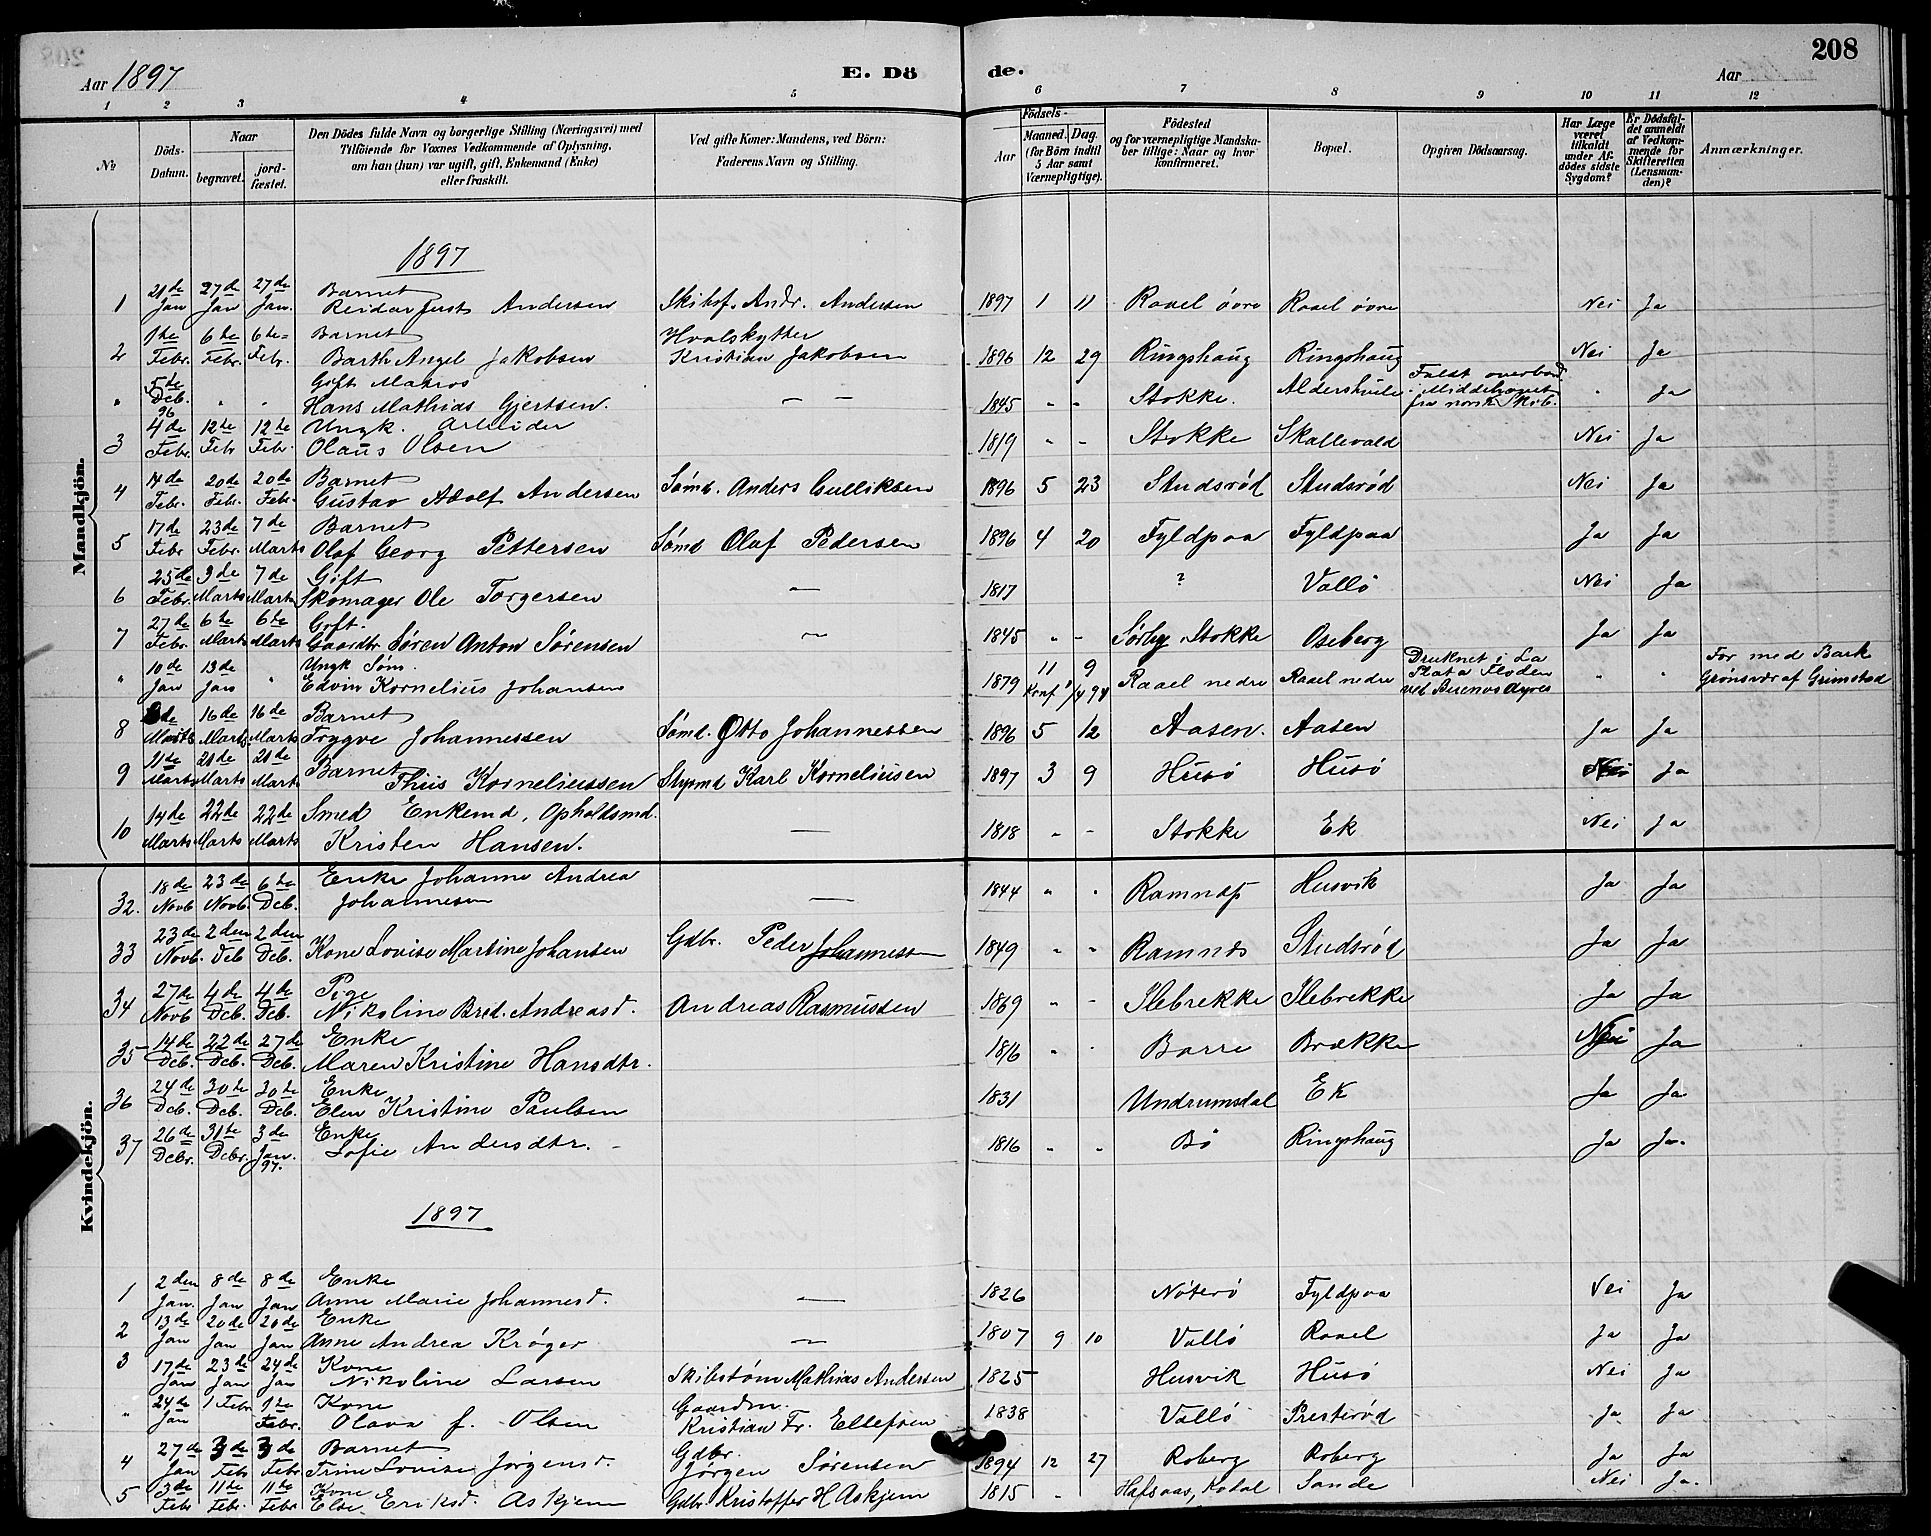 208
Aar 1897 E. Dö de. Aar
1 2 3 4 5 6 7 8 9 10 11 12
№
Döds-Datum.
Naar
begravet.
jord-fæstet.
Den Dödes fulde Navn og borgerlige Stilling (Næringsvei) med
Tilföiende for Voxnes Vedkommende af Oplysning,
om han (hun) var ugift, gift, Enkemand (Enke)
eller fraskilt.
Ved gifte Koner: Mandens, ved Börn:
Faderens Navn og Stilling.
Födsels-
Aar
Maaned. Dag.
(for Börn indtil
5 Aar samt
Værnepligtige).
Födested
og for værnepligtige Mandska-
ber tillige: Naar og hvor
konfirmeret.
Bopæl.
Opgiven Dödsaarsag.
Har Læge
været
tilkaldt
under Af-
dödes sidste
Sygdom?
Er Dödsfal-
det anmeldt
af Vedkom-
mende for
Skifteretten
(Lensman-
den)?
Anmærkninger.
Mandkjön.
1897
1 21de Jan 27de Jan 27de Jan. Barnet
Reidar Just Andersen Skibsf. Andr. Andersen 1897 1 11 Raael övre Raael övre Nei Ja
2 1te Febr. 6te Febr. 6te Febr. Barnet Hvalskytter
Barth Angel Jakobsen Kristian Jakobsen 1896 12 29 Ringshaug Ringshaug Nei Ja
" 5te Deb. 96 " " Gift Matros
Hans Mathias Gjertsen. — — 1845 " " Stokke. Faldt overbord
i Middelhavet
fra norsk Skib. " Ja
3 4de Febr. 12te Febr 12te Febr. Ungk. Arbeider
Olaus Olsen 1819 " " Stokke Skallevald Nei Ja
4 14de Febr. 20de Febr. 20de Febr. Barnet
Gustav Adolf Andersen Sømd. Anders Gulliksen 1896 5 23 Studsrød Studsrød Nei Ja
5 17de Febr 23de Febr. 7de Marts Barnet
Olaf Georg Pettersen Sømd Olaf Pedersen 1896 4 20 Fyldpaa Fyldpaa Ja Ja
6 25de Febr. 3de Marts 7de Marts Gift
Skomager Ole Torgersen — 1817 ? Vallö Nei Ja
7 27de Febr. 6te Marts 6te Marts Gift.
Gaardbr Søren Anton Sørensen — 1845 " " Sørby Stokke Oseberg Ja Ja
" 10de Jan 13de Jan " Ungk Søm.
Edvin Kornelius Johansen 1879 11 9 Konf 1/4 94 Raael nedre Raael nedre Druknet i La
Plata Floden
ved Buenos Ayres " " For med Bark
Grönsvær af Grimstad
8 Marts 16de Marts 16de Marts Barnet
Trygve Johannessen Sømd. Otto Johannessen 1896 5 12 Aasen. Aasen Ja Ja
9 11de Marts 21de Marts 21de Marts Barnet
Thiis Korneliussen Styrmd Karl Korneliusen 1897 3 9 Husö Husö Nei Ja
10 14de Marts 22de Marts 22de Marts Smed Enkemd, Opholdsmd.
Kristen Hansen. — 1818 " " Stokke Ek Nei Ja
Kvindekjön.
32. 18de Novb 23de Novb. 6te Deb. Enke Johanne Andrea
Johannesen — 1844 " " Ramnæs Husvik Ja Ja
33 23de Novb. 2den Deb 2den Deb. Kone Lovise Martine Johansen Gdbr. Peder Johannessen 1849 " " Ramnæs Studsrød Ja Ja
34 27de Novb 4de Deb. 4de Deb. Pige
Nikoline Bred. Andreasd. Andreas Rasmussen 1869 " " Ilebrekke Ilebrekke Ja Ja
35 14de Deb. 22de Deb. 27de Deb. Enke
Maren Kristine Hansdtr. 1816 " " Borre Brække Nei Ja
36 24de Deb. 30te Deb. 30te Deb. Enke
Elen Kristine Paulsen 1831 Undrumsdal Ek Ja Ja
37 26de Debr. 31te Debr. 3de Jan. 97. Enke
Sofie Andersdtr. 1816 " " Bö Ringshaug Ja Ja.
1897
1 2den Jan. 8de Jan 8de Jan Enke
Anne Marie Johannesd. — 1826 Nöterö Fyldpaa Nei Ja
2 13de Jan 20de Jan 20de Jan Enke
Anne Andrea Krøger — 1807 9 10 Vallö Raael Ja Ja
3 17de Jan 23de Jan 24de Jan Kone
Nikoline Larsen Skibstöm Mathias Andersen 1825 Husvik Husö Nei Ja
" 24de Jan 1 Febr 1te Febr. Kone Gaardm.
Olava J. Olsen Kristian Fr. Ellefsen 1838 Vallö Presterød Ja Ja
4 27de Jan 3de Febr 3de Febr Barnet Gdbr.
Trine Lovise Jörgensd. Jørgen Sørensen 1894 12 27 Roberg Roberg Ja Ja
5 3de Febr 11te Febr. 11te Febr Kone
Else Eriksd. Askjem Gdbr Kristoffer H Askjem 1815 " Hafsaas, Kodal Sande Nei Ja.